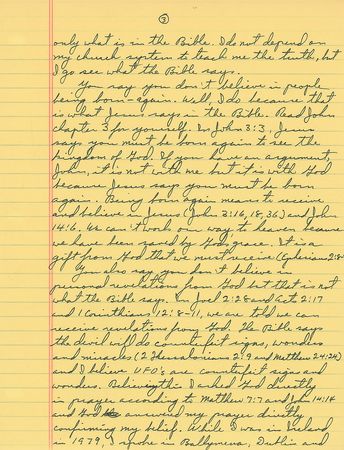 ③
only what is in the Bible. I do not depend on
my church system to teach me the truth, but
I go see what the Bible says.
You say you don't believe in people
being born-again. Well, I do because that
is what Jesus says in the Bible. Read John
chapter 3 for yourself. In John 3:3, Jesus
says you must be born again to see the
kingdom of God. If you have an argument,
John, it is not with me but it is with God
because Jesus says you must be born
again. Being born again means to receive
and believe in Jesus (John 3:16, 18, 36) and John
14:6. We can't work our way to heaven because
we have been saved by God's grace. It is a
gift from God that we must receive (Ephesians 2:8
You also say you don't believe in
personal revelations from God but that is not
what the Bible says. In Joel 2:28 and Acts 2:17
and 1 Corinthians 12:8-11, we are told we can
receive revelations from God. The Bible says
the devil will do counterfeit signs, wonders
and miracles (2 Thessalonians 2:9 and Matthew 24:24)
and I believe UFO's are counterfeit signs and
wonders. Believing this I asked God directly
in prayer according to Matthew 7:7 and John 14:14
and God answered my prayer directly
confirming my belief. While I was in Ireland
in 1979, I spoke in Ballymena, Dublin and